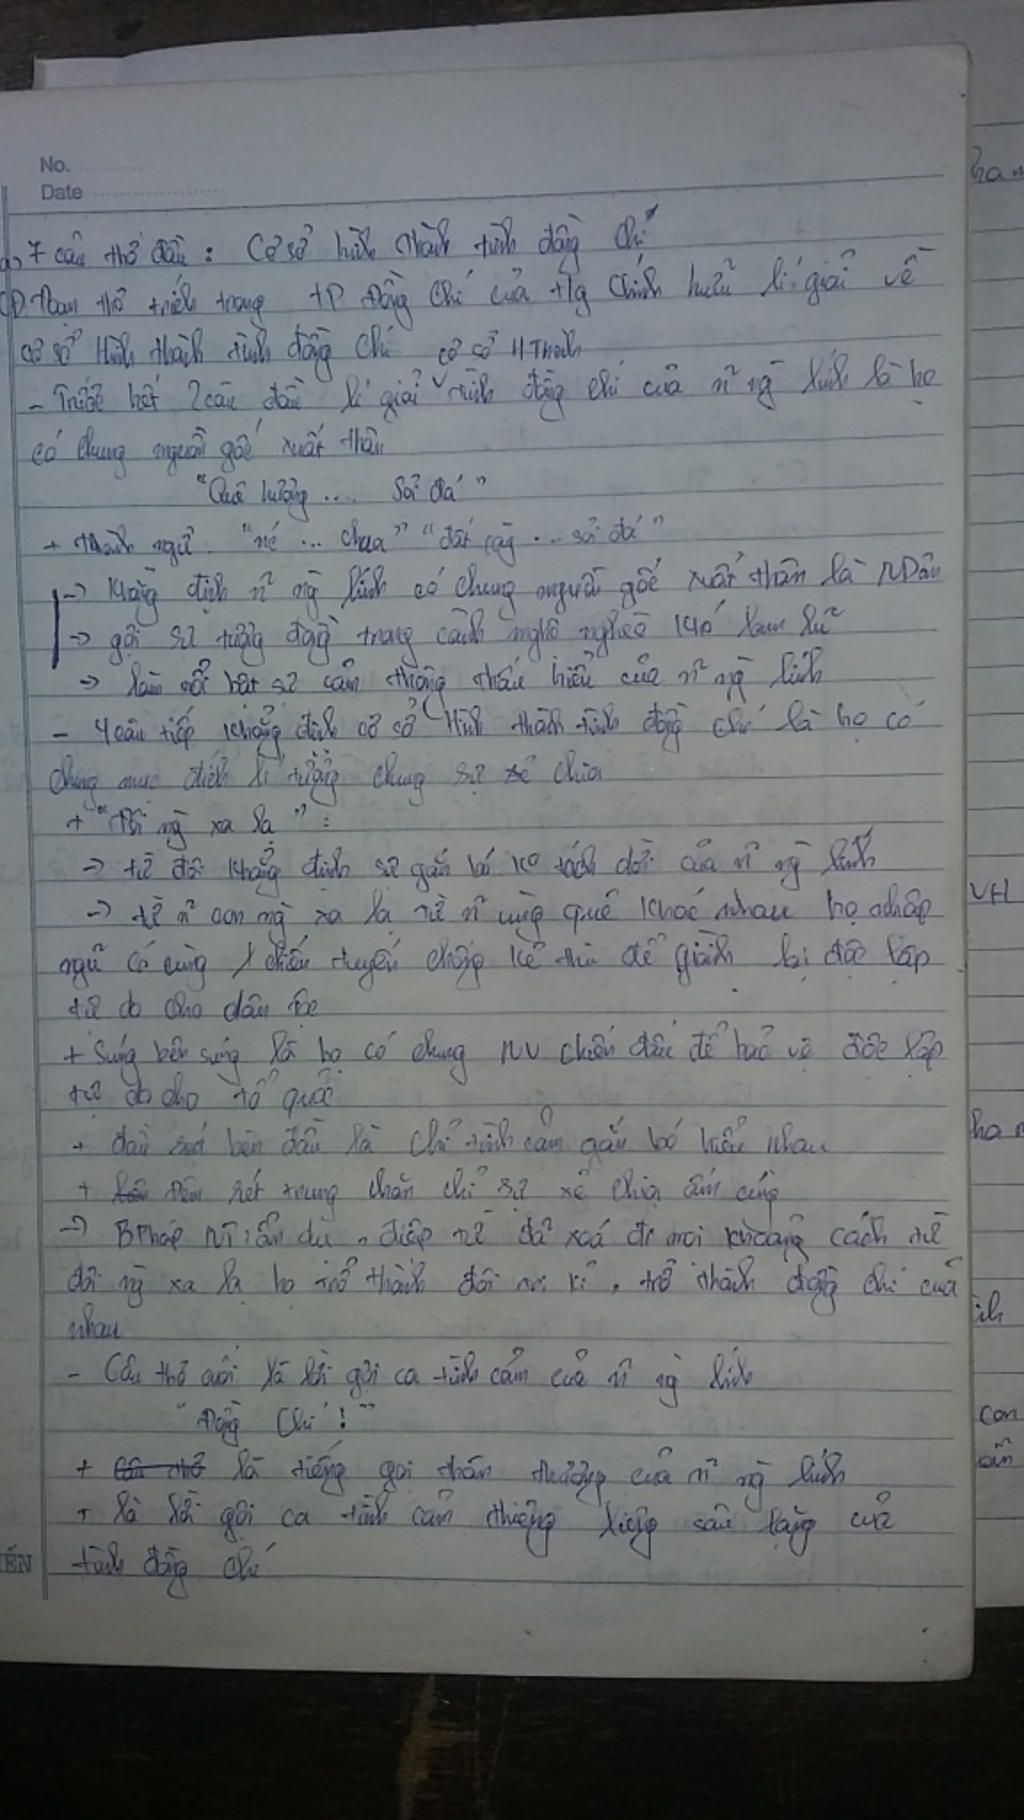 No.
Date
a, 7 câu thơ đầu : Cơ sở hình thành tình đồng chí
Đoạn thơ trích trong tP Đồng Chí của t/g Chính hữu lí giải về
cơ sở Hình thành tình đồng Chí cơ sở HThành
- Trước hết 2 câu đầu lí giải tình đồng chí của n~ ng lính là họ
có chung nguồn gốc xuất thân
"Quê hương .... Sỏi đá"
+ thành ngữ "nc ... chua" "đất cày ... sỏi đá"
-> Khẳng định n~ ng lính có chung nguồn gốc xuất thân là NDân
=> gợi sự tương đồng trong cảnh nghèo khó lam lũ
=> làm nổi bật sự cảm thông thấu hiểu của n~ ng lính
- 4 câu tiếp khẳng định cơ sở Hình thành tình đồng chí là họ có
chung mục đích lí tưởng chung sự sẻ chia
+ "Đôi ng xa lạ" :
-> từ đôi khẳng định sự gắn bó ko tách dời của n~ ng lính
-> từ n~ con ng xa lạ từ n~ vùng quê khác nhau họ nhập
ngũ có cùng 1 chiến tuyến chống kẻ thù để giành lại độc lập
tự do cho dân tộc
+ Súng bên súng là họ có chung NV chiến đấu để bảo vệ độc lập
tự do cho tổ quốc
+ đầu sát bên đầu là chỉ tình cảm gắn bó hiểu nhau
+ Đêm rét chung chăn chỉ sự sẻ chia ấm cúng
-> BPháp NT : ẩn dụ, điệp từ đã xoá đi mọi khoảng cách từ
đôi ng xa lạ họ trở thành đôi tri kỉ, trở thành đồng chí của
nhau
- Câu thơ cuối là lời gợi ca tình cảm của n~ ng lính
"Đồng Chí !"
+ Câu thơ là tiếng gọi thân thương của n~ ng lính
+ là lời gợi ca tình cảm thiêng liêng sâu lặng của
tình đồng chí
VH
con
ẾN